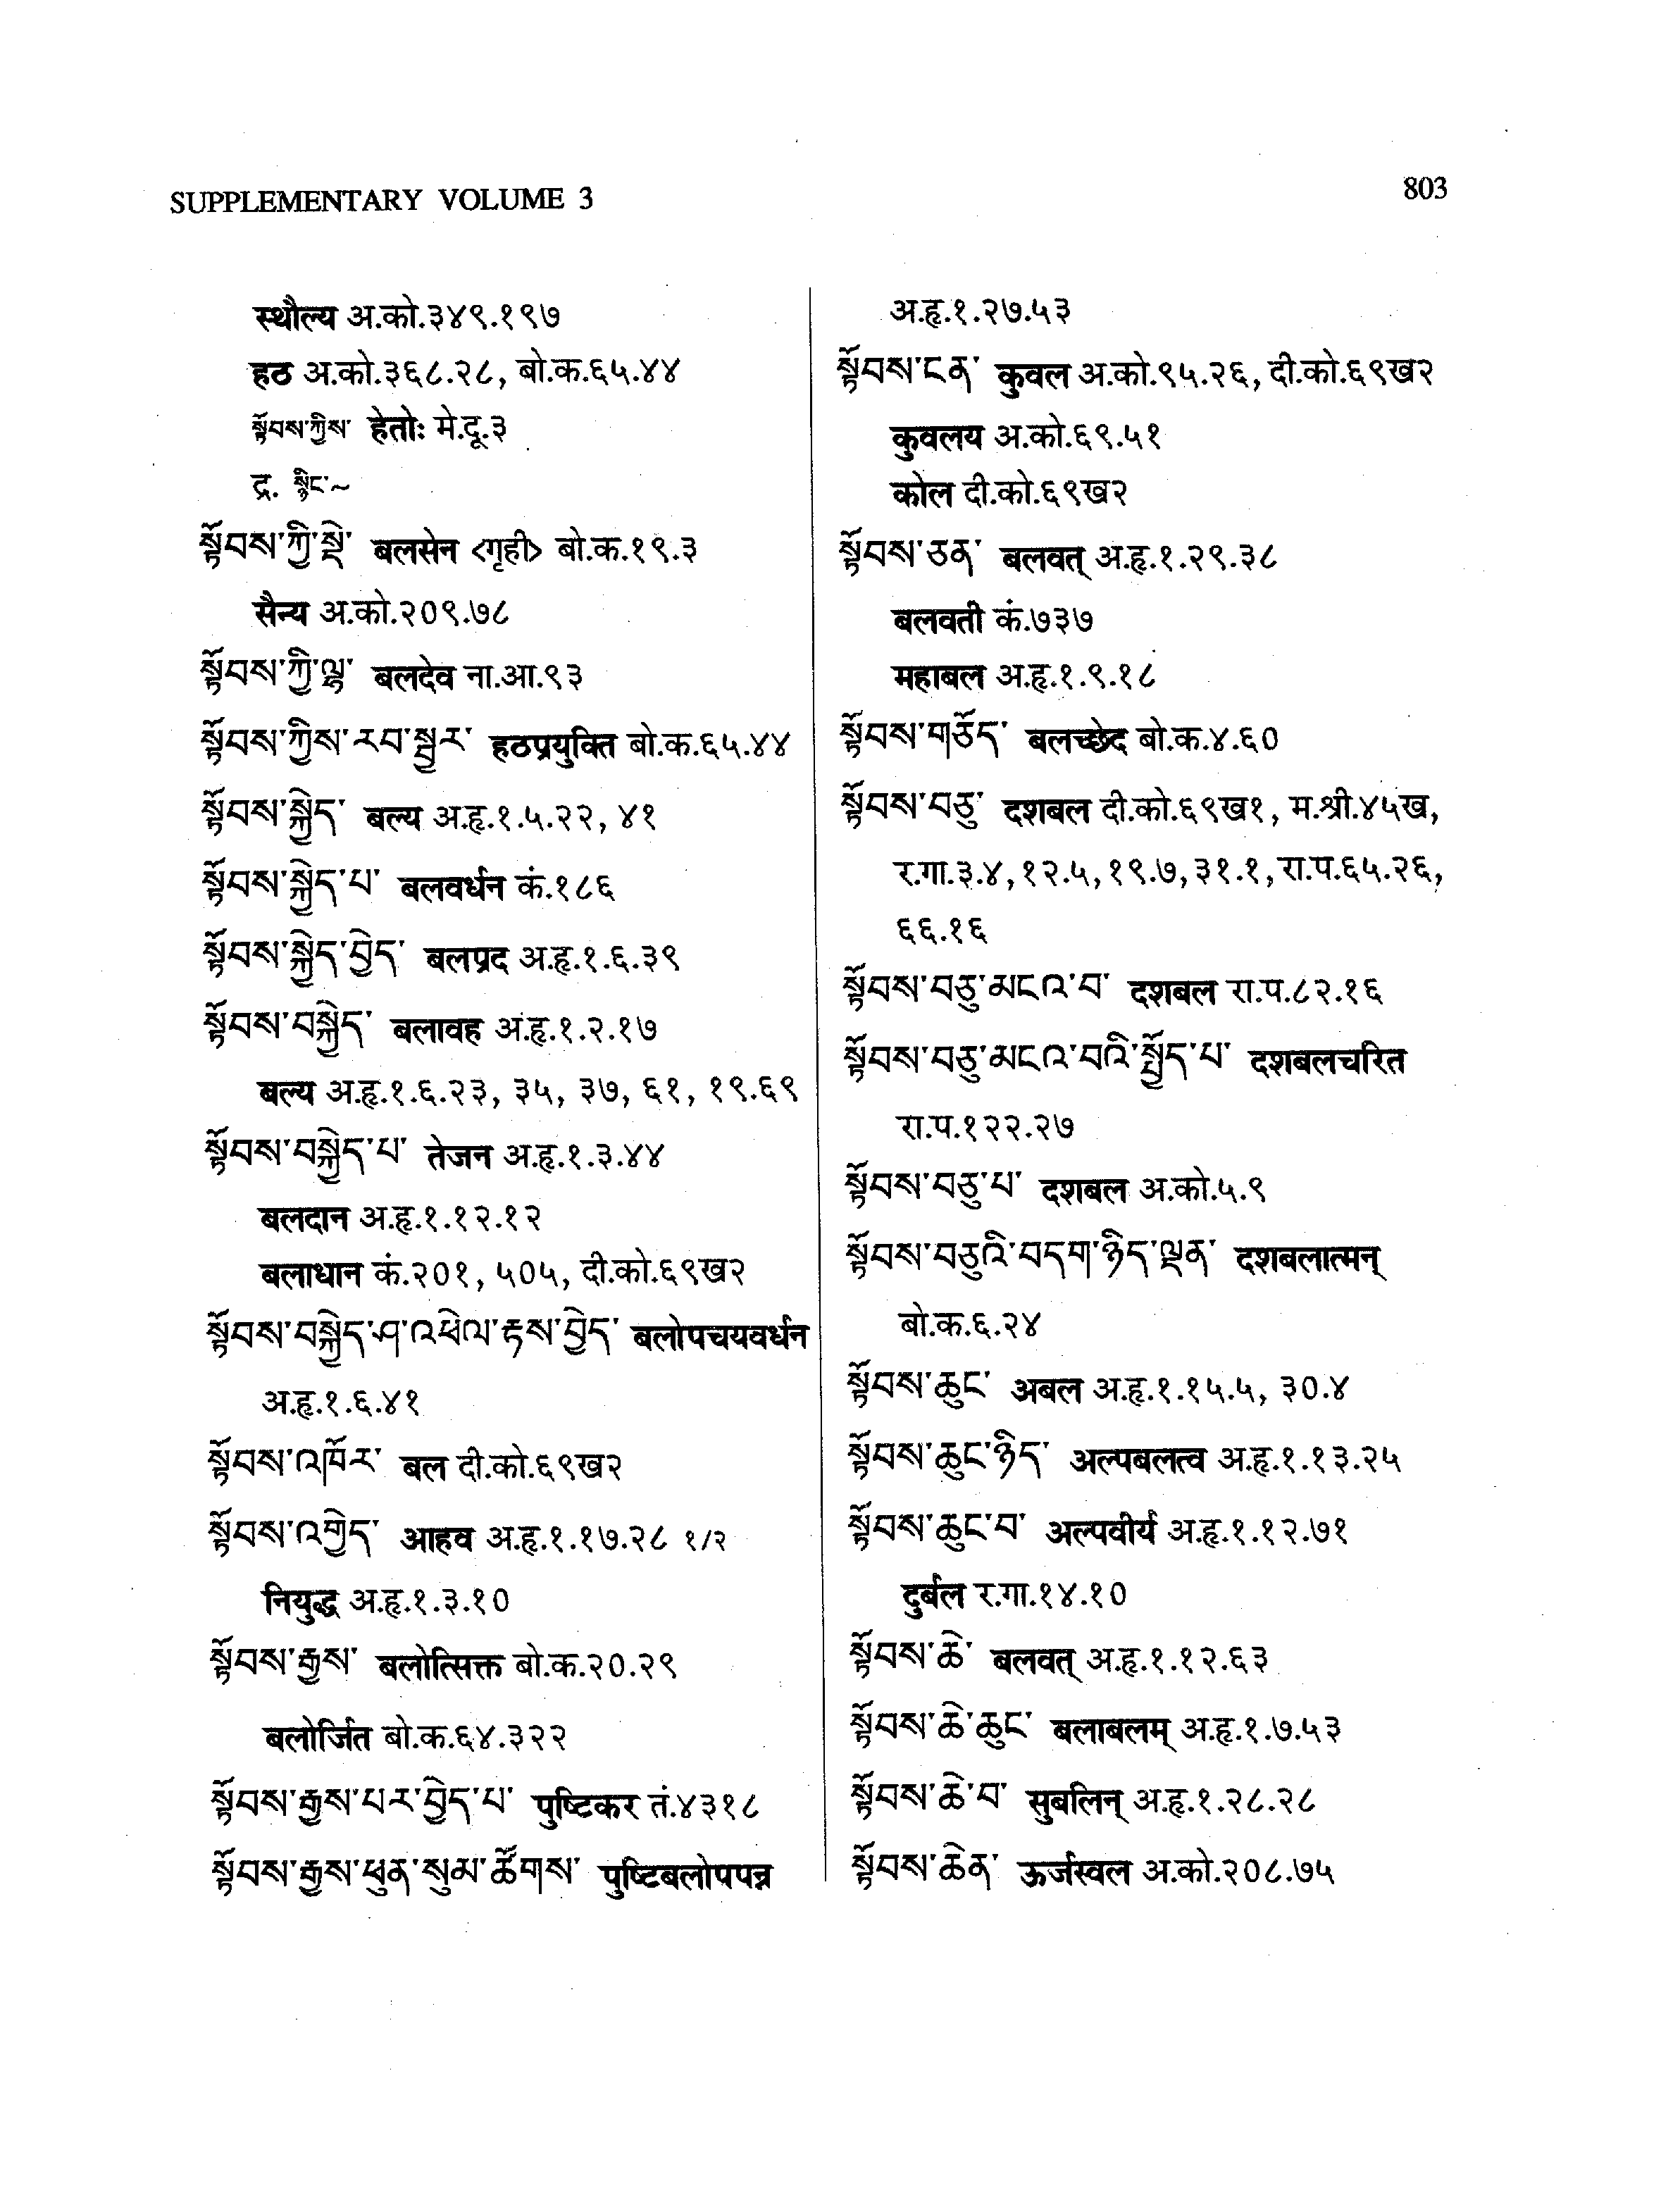 SUPPLEMENTARY VOLUME 3
803
स्थौल्य अ.को.३४९.१९७
हठ अ.को.३६८.२८, बो.क.६५.४४
སྟོབས་ཀྱིས་ हेतोः मे.दू.३
द्र. སྙིང་~
སྟོབས་ཀྱི་སྡེ་ बलसेन <गृही> बो.क.१९.३
सैन्य अ.को.२०९.७८
སྟོབས་ཀྱི་ལྷ་ बलदेव ना.आ.९३
སྟོབས་ཀྱིས་རབ་སྦྱར་ हठप्रयुक्ति बो.क.६५.४४
སྟོབས་སྐྱེད་ बल्य अ.हृ.१.५.२२, ४१
སྟོབས་སྐྱེད་པ་ बलवर्धन कं.१८६
སྟོབས་སྐྱེད་བྱེད་ बलप्रद अ.हृ.१.६.३९
སྟོབས་བསྐྱེད་ बलावह अ.हृ.१.२.१७
बल्य अ.हृ.१.६.२३, ३५, ३७, ६१, १९.६९
སྟོབས་བསྐྱེད་པ་ तेजन अ.हृ.१.३.४४
बलदान अ.हृ.१.१२.१२
बलाधान कं.२०१, ५०५, दी.को.६९ख२
སྟོབས་བསྐྱེད་ཤ་འཕེལ་རྟས་བྱེད་ बलोपचयवर्धन
अ.हृ.१.६.४१
སྟོབས་འཁོར་ बल दी.को.६९ख२
སྟོབས་འགྱེད་ आहव अ.हृ.१.१७.२८ १/२
नियुद्ध अ.हृ.१.३.१०
སྟོབས་རྒྱས་ बलोत्सिक्त बो.क.२०.२९
बलोर्जित बो.क.६४.३२२
སྟོབས་རྒྱས་པར་བྱེད་པ་ पुष्टिकर तं.४३१८
སྟོབས་རྒྱས་ཕུན་སུམ་ཚོགས་ पुष्टिबलोपपन्न
अ.हृ.१.२७.५३
སྟོབས་ངན་ कुवल अ.को.९५.२६, दी.को.६९ख२
कुवलय अ.को.६९.५१
कोल दी.को.६९ख२
སྟོབས་ཅན་ बलवत् अ.हृ.१.२९.३८
बलवती कं.७३७
महाबल अ.हृ.१.९.१८
སྟོབས་གཅོད་ बलच्छेद बो.क.४.६०
སྟོབས་བཅུ་ दशबल दी.को.६९ख१, म.श्री.४५ख,
र.गा.३.४, १२.५, १९.७, ३१.१, रा.प.६५.२६,
६६.१६
སྟོབས་བཅུ་མངའ་བ་ दशबल रा.प.८२.१६
སྟོབས་བཅུ་མངའ་བའི་སྤྱོད་པ་ दशबलचरित
रा.प.१२२.२७
སྟོབས་བཅུ་པ་ दशबल अ.को.५.९
སྟོབས་བཅུའི་བདག་ཉིད་ལྡན་ दशबलात्मन्
बो.क.६.२४
སྟོབས་ཆུང་ अबल अ.हृ.१.१५.५, ३०.४
སྟོབས་ཆུང་ཉིད་ अल्पबलत्व अ.हृ.१.१३.२५
སྟོབས་ཆུང་བ་ अल्पवीर्य अ.हृ.१.१२.७१
दुर्बल र.गा.१४.१०
སྟོབས་ཆེ་ बलवत् अ.हृ.१.१२.६३
སྟོབས་ཆེ་ཆུང་ बलाबलम् अ.हृ.१.७.५३
སྟོབས་ཆེ་བ་ सुबलिन् अ.हृ.१.२८.२८
སྟོབས་ཆེན་ ऊर्जस्वल अ.को.२०८.७५